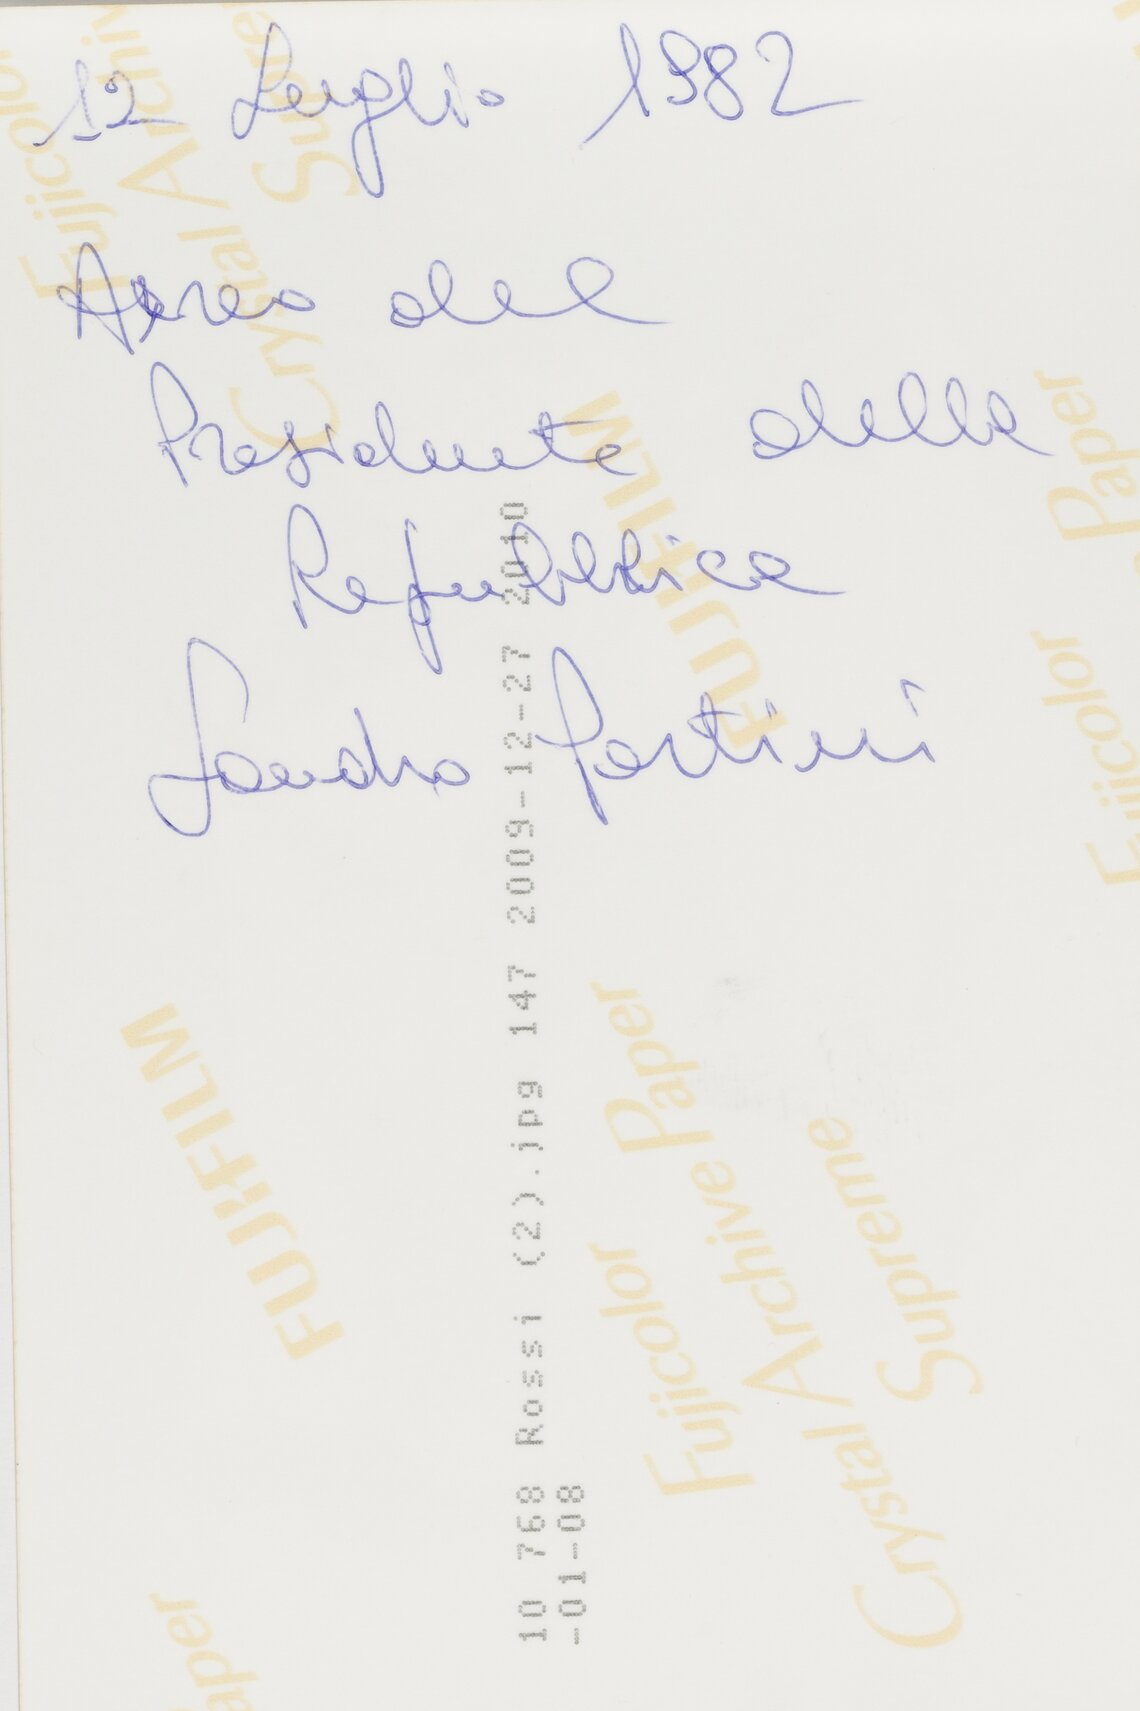 12 Luglio 1982
Aereo del
Presidente della
Repubblica
Sandro Pertini
10 768 Rossi (2).jpg 147 2009-12-27 2010
-01-08
Fujicolor
Crystal Archive
Supreme
FUJIFILM
Fujicolor Paper
FUJIFILM
Fujicolor Paper
Crystal Archive Paper
Supreme
Paper